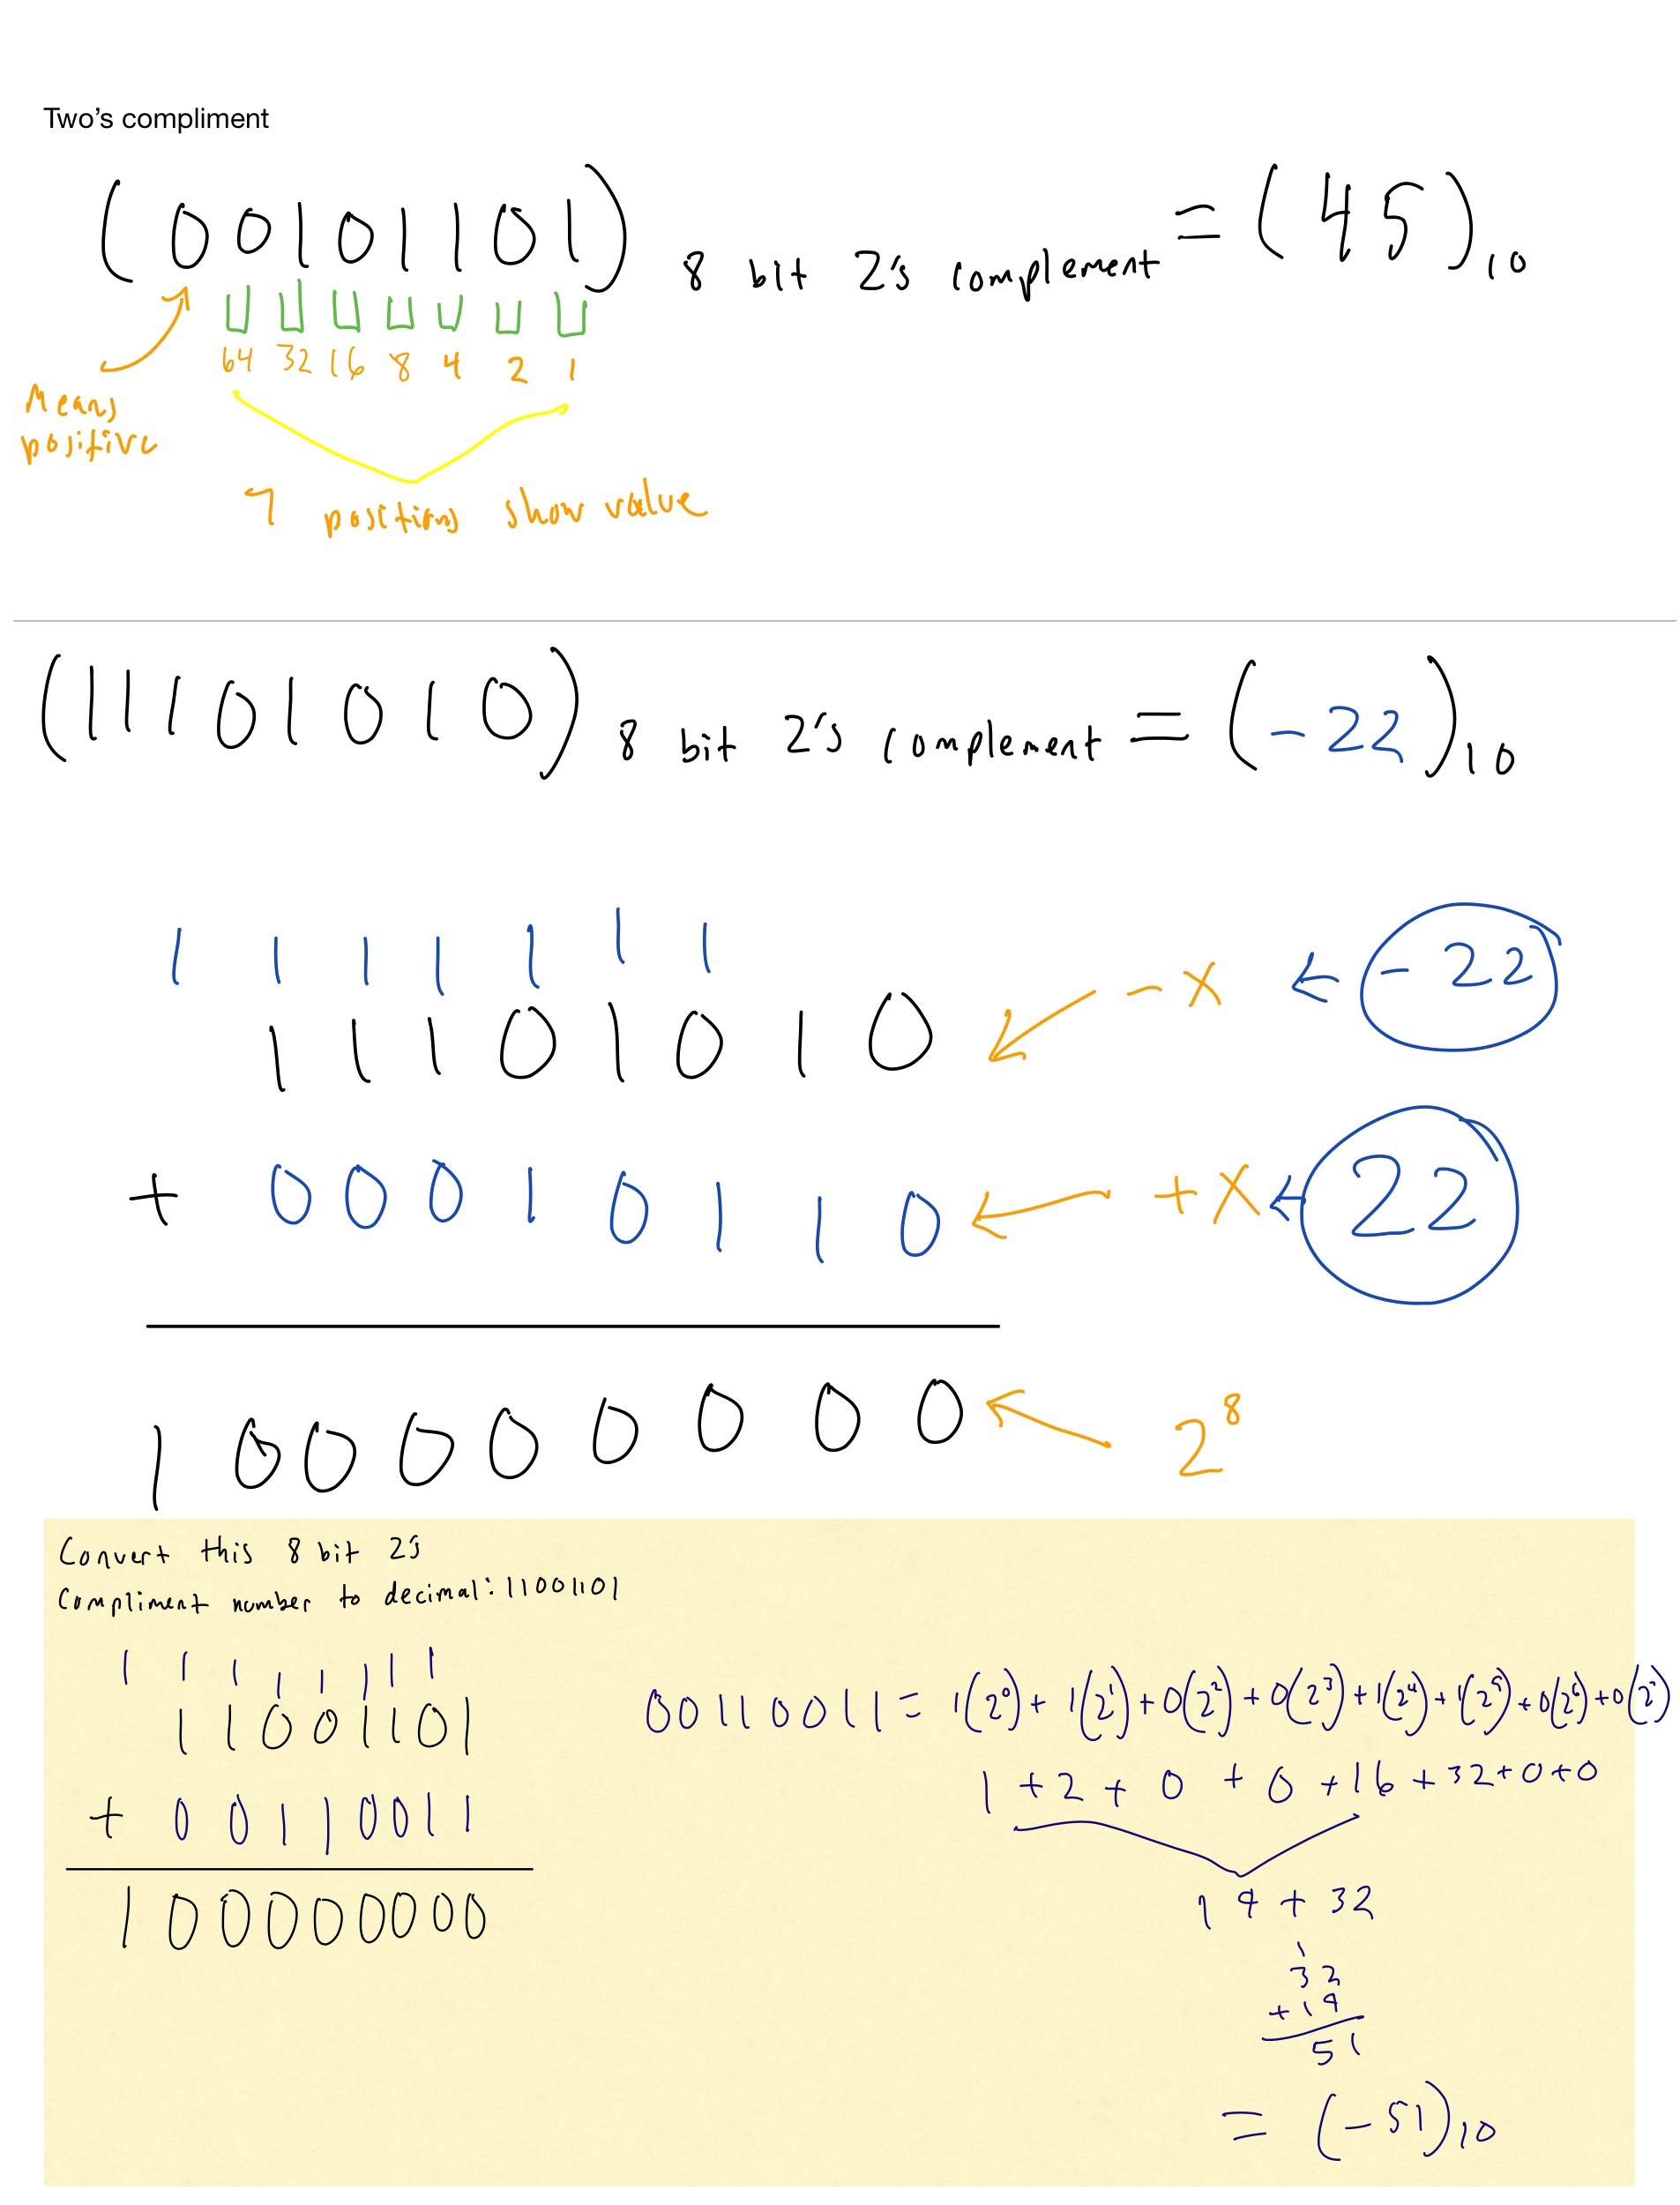 Two's compliment
(00101101) 8 bit 2's complement = (45)10
64 32 16 8 4 2 1
Means
positive
7 positions show value
(11101010) 8 bit 2's complement = (-22)10
1 1 1 1 1 1 1
1 1 1 0 1 0 1 0 -x ← -22
+ 0 0 0 1 0 1 1 0 +x ← 22
1 0 0 0 0 0 0 0 0 2^8
Convert this 8 bit 2's
Compliment number to decimal: 11001101
1 1 1 1 1 1 1 1
1 1 0 0 1 1 0 1
+ 0 0 1 1 0 0 1 1
1 0 0 0 0 0 0 0 0
00110011 = 1(2^0) + 1(2^1) + 0(2^2) + 0(2^3) + 1(2^4) + 1(2^5) + 0(2^6) + 0(2^7)
1 + 2 + 0 + 0 + 16 + 32 + 0 + 0
19 + 32
1
32
+ 19
51
= (-51)10